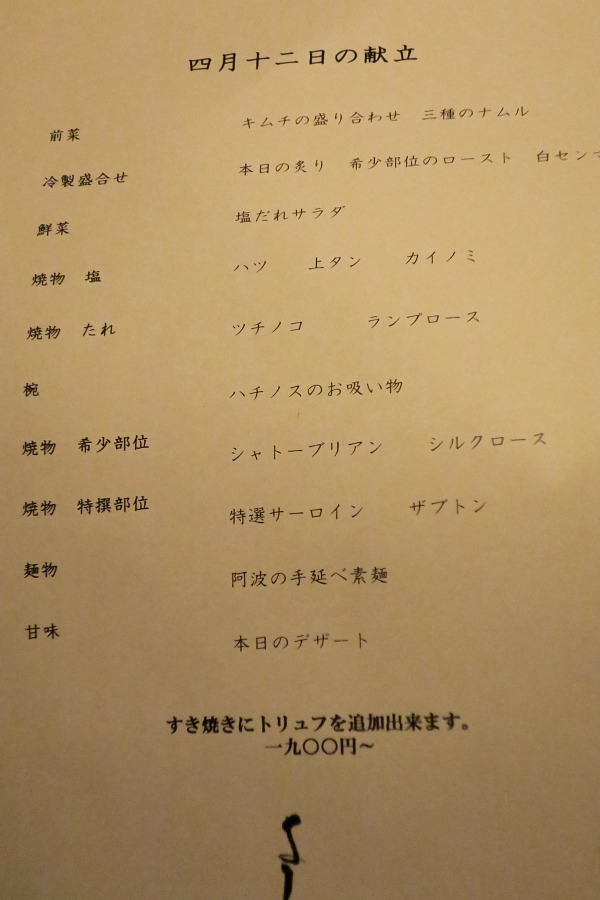 四月十二日の献立
前菜 キムチの盛り合わせ 三種のナムル
冷製盛合せ 本日の炙り 希少部位のロースト 白センマ
鮮菜 塩だれサラダ
焼物 塩 ハツ 上タン カイノミ
焼物 たれ ツチノコ ランプロース
椀 ハチノスのお吸い物
焼物 希少部位 シャトーブリアン シルクロース
焼物 特撰部位 特選サーロイン ザブトン
麺物 阿波の手延べ素麺
甘味 本日のデザート
すき焼きにトリュフを追加出来ます。
一九〇〇円～